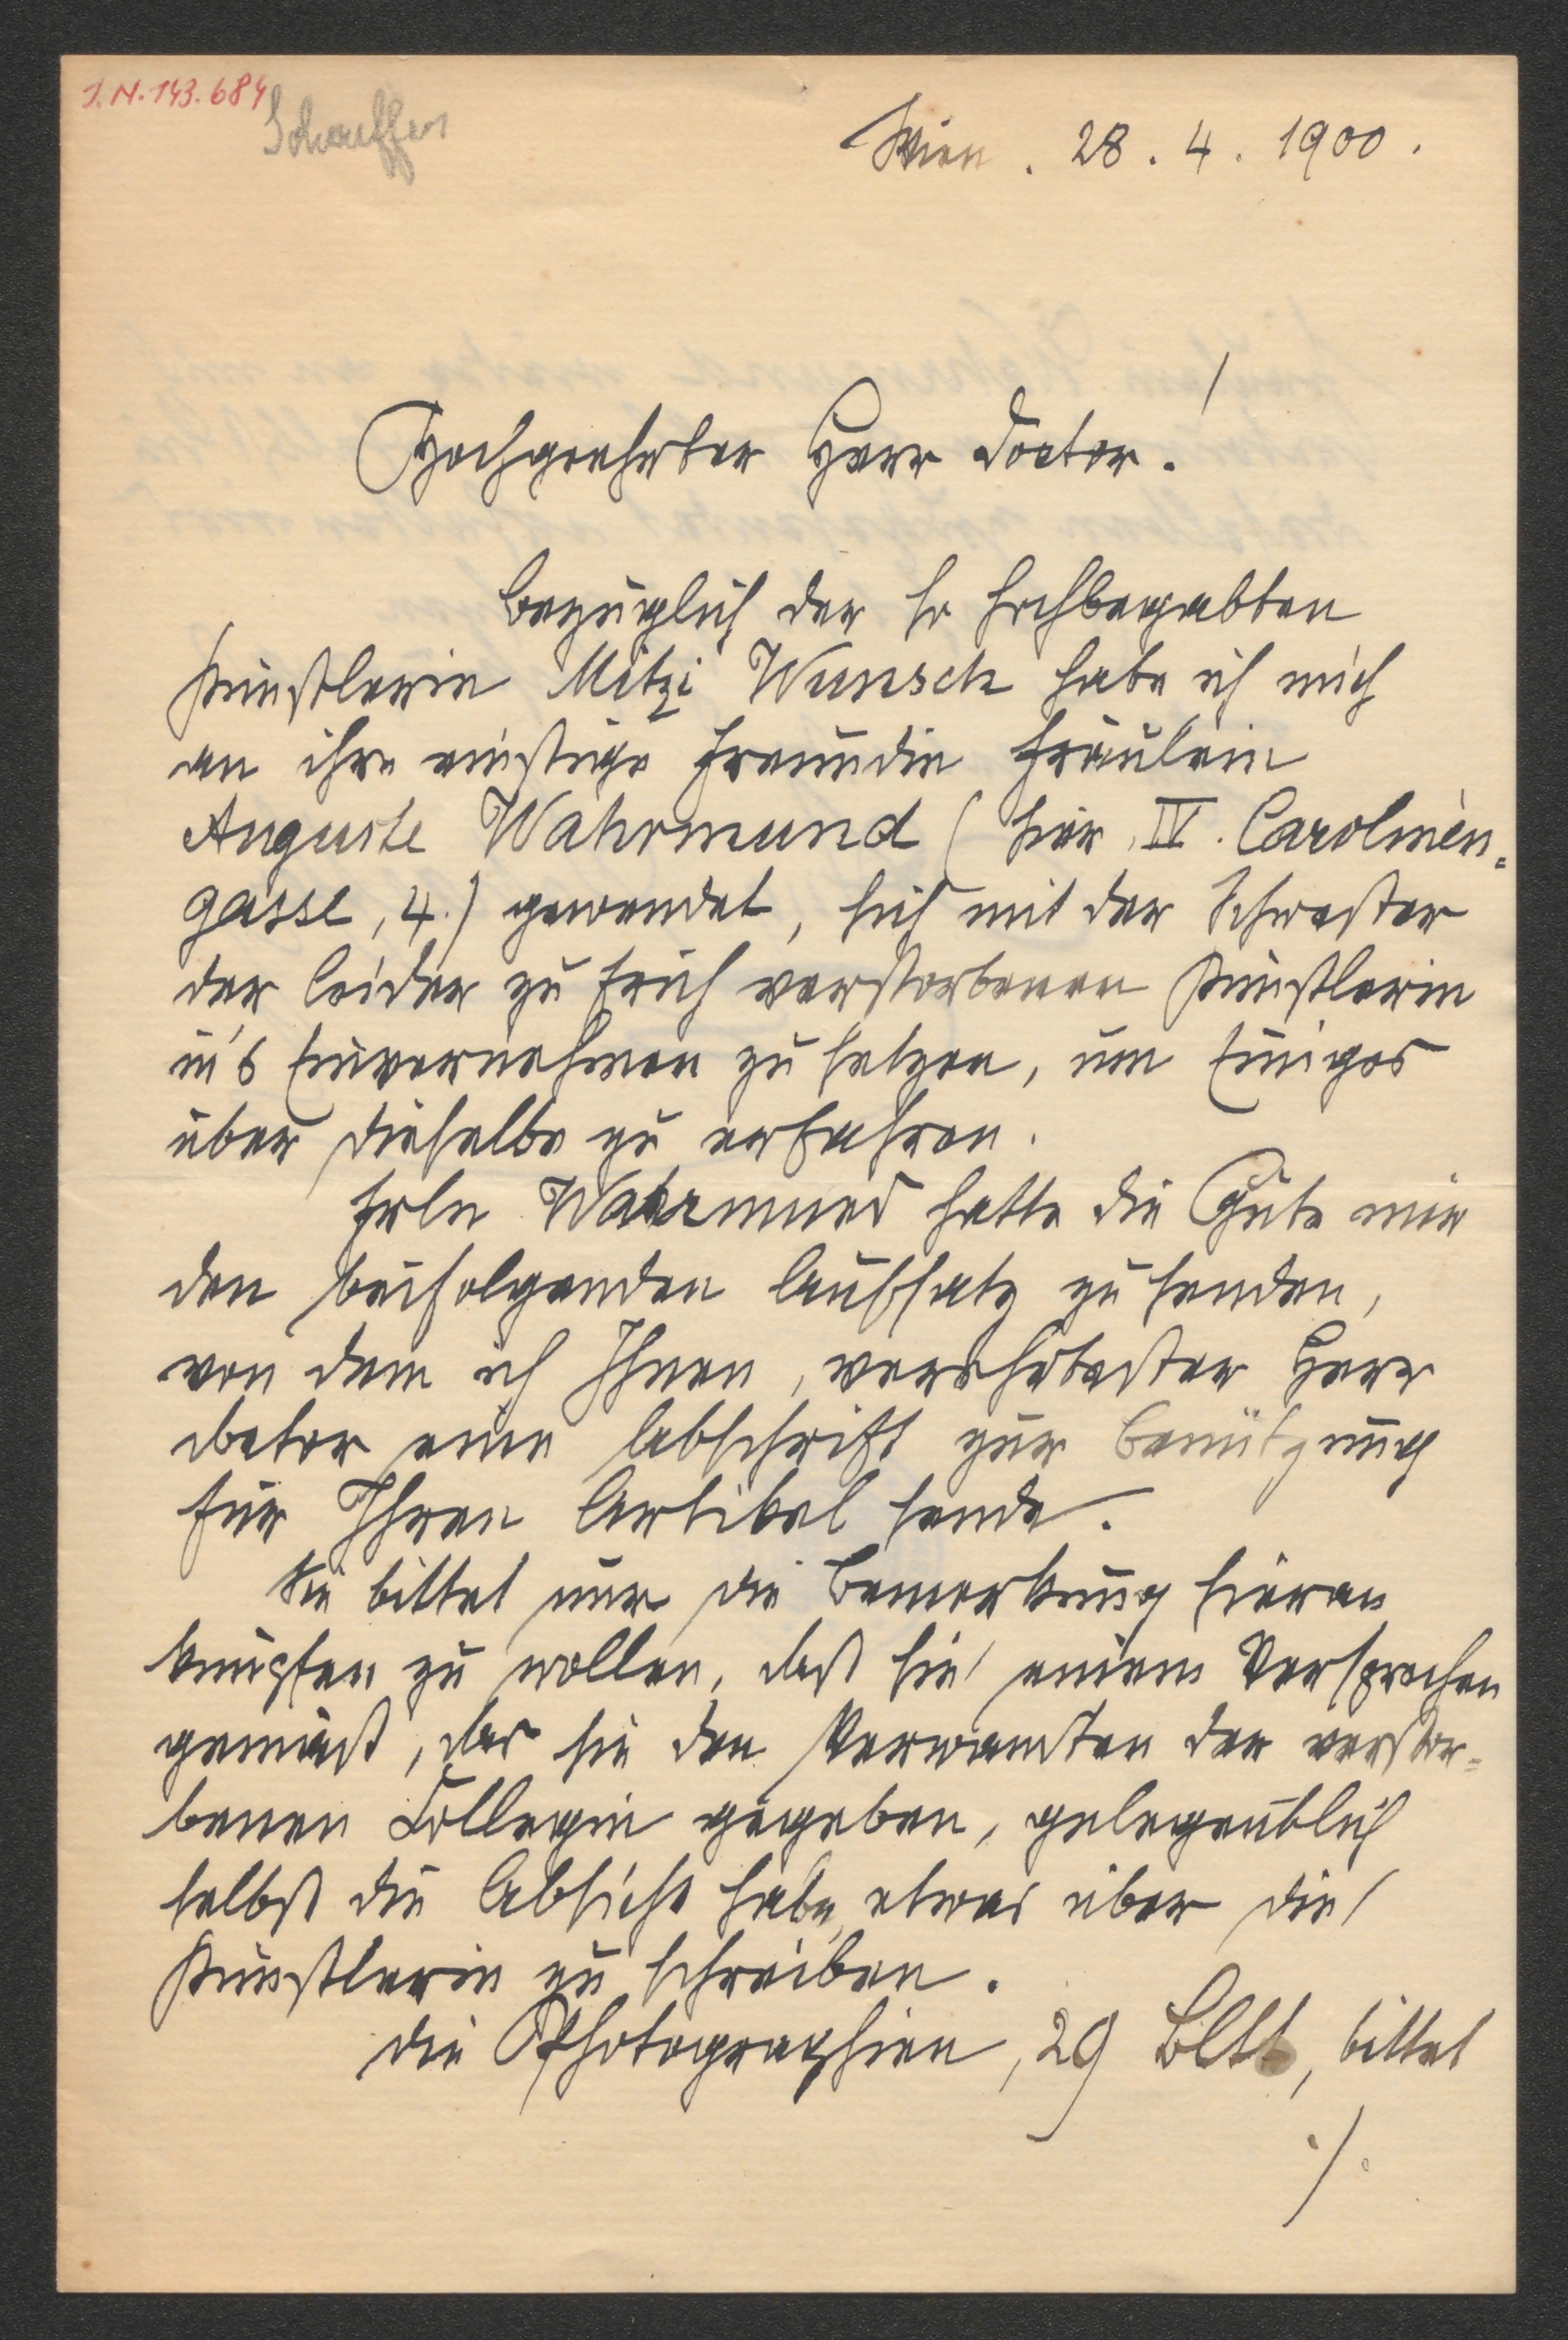 I.N. 143.684
Schauffer
Wien. 28. 4. 1900.
Hochgeehrter Herr Doctor!
Bezüglich der so hochbegabten
Künstlerin Mitzi Wunsch habe ich mich
an ihre einstige Freundin Fräulein
Auguste Wahrmund (hier, IV. Carolinen-
gasse, 4.) gewendet, sich mit der Schwester
der leider zu früh verstorbenen Künstlerin
in's Einvernehmen zu setzen, um Einiges
über dieselbe zu erfahren.
Frln Wahrmund hatte die Güte mir
den beifolgenden Aufsatz zu senden,
von dem ich Ihnen, verehrtester Herr
Doctor eine Abschrift zur Benützung
für Ihren Artikel sende.
Sie bittet nur die Bemerkung hieran
knüpfen zu wollen, daß sie, einem Versprechen
gemäß, das sie den Verwandten der verstor=
benen Collegin gegeben, gelegentlich
selbst die Absicht habe, etwas über die
Künstlerin zu schreiben.
Die Photographien, 29 Bltt, bittet
./.